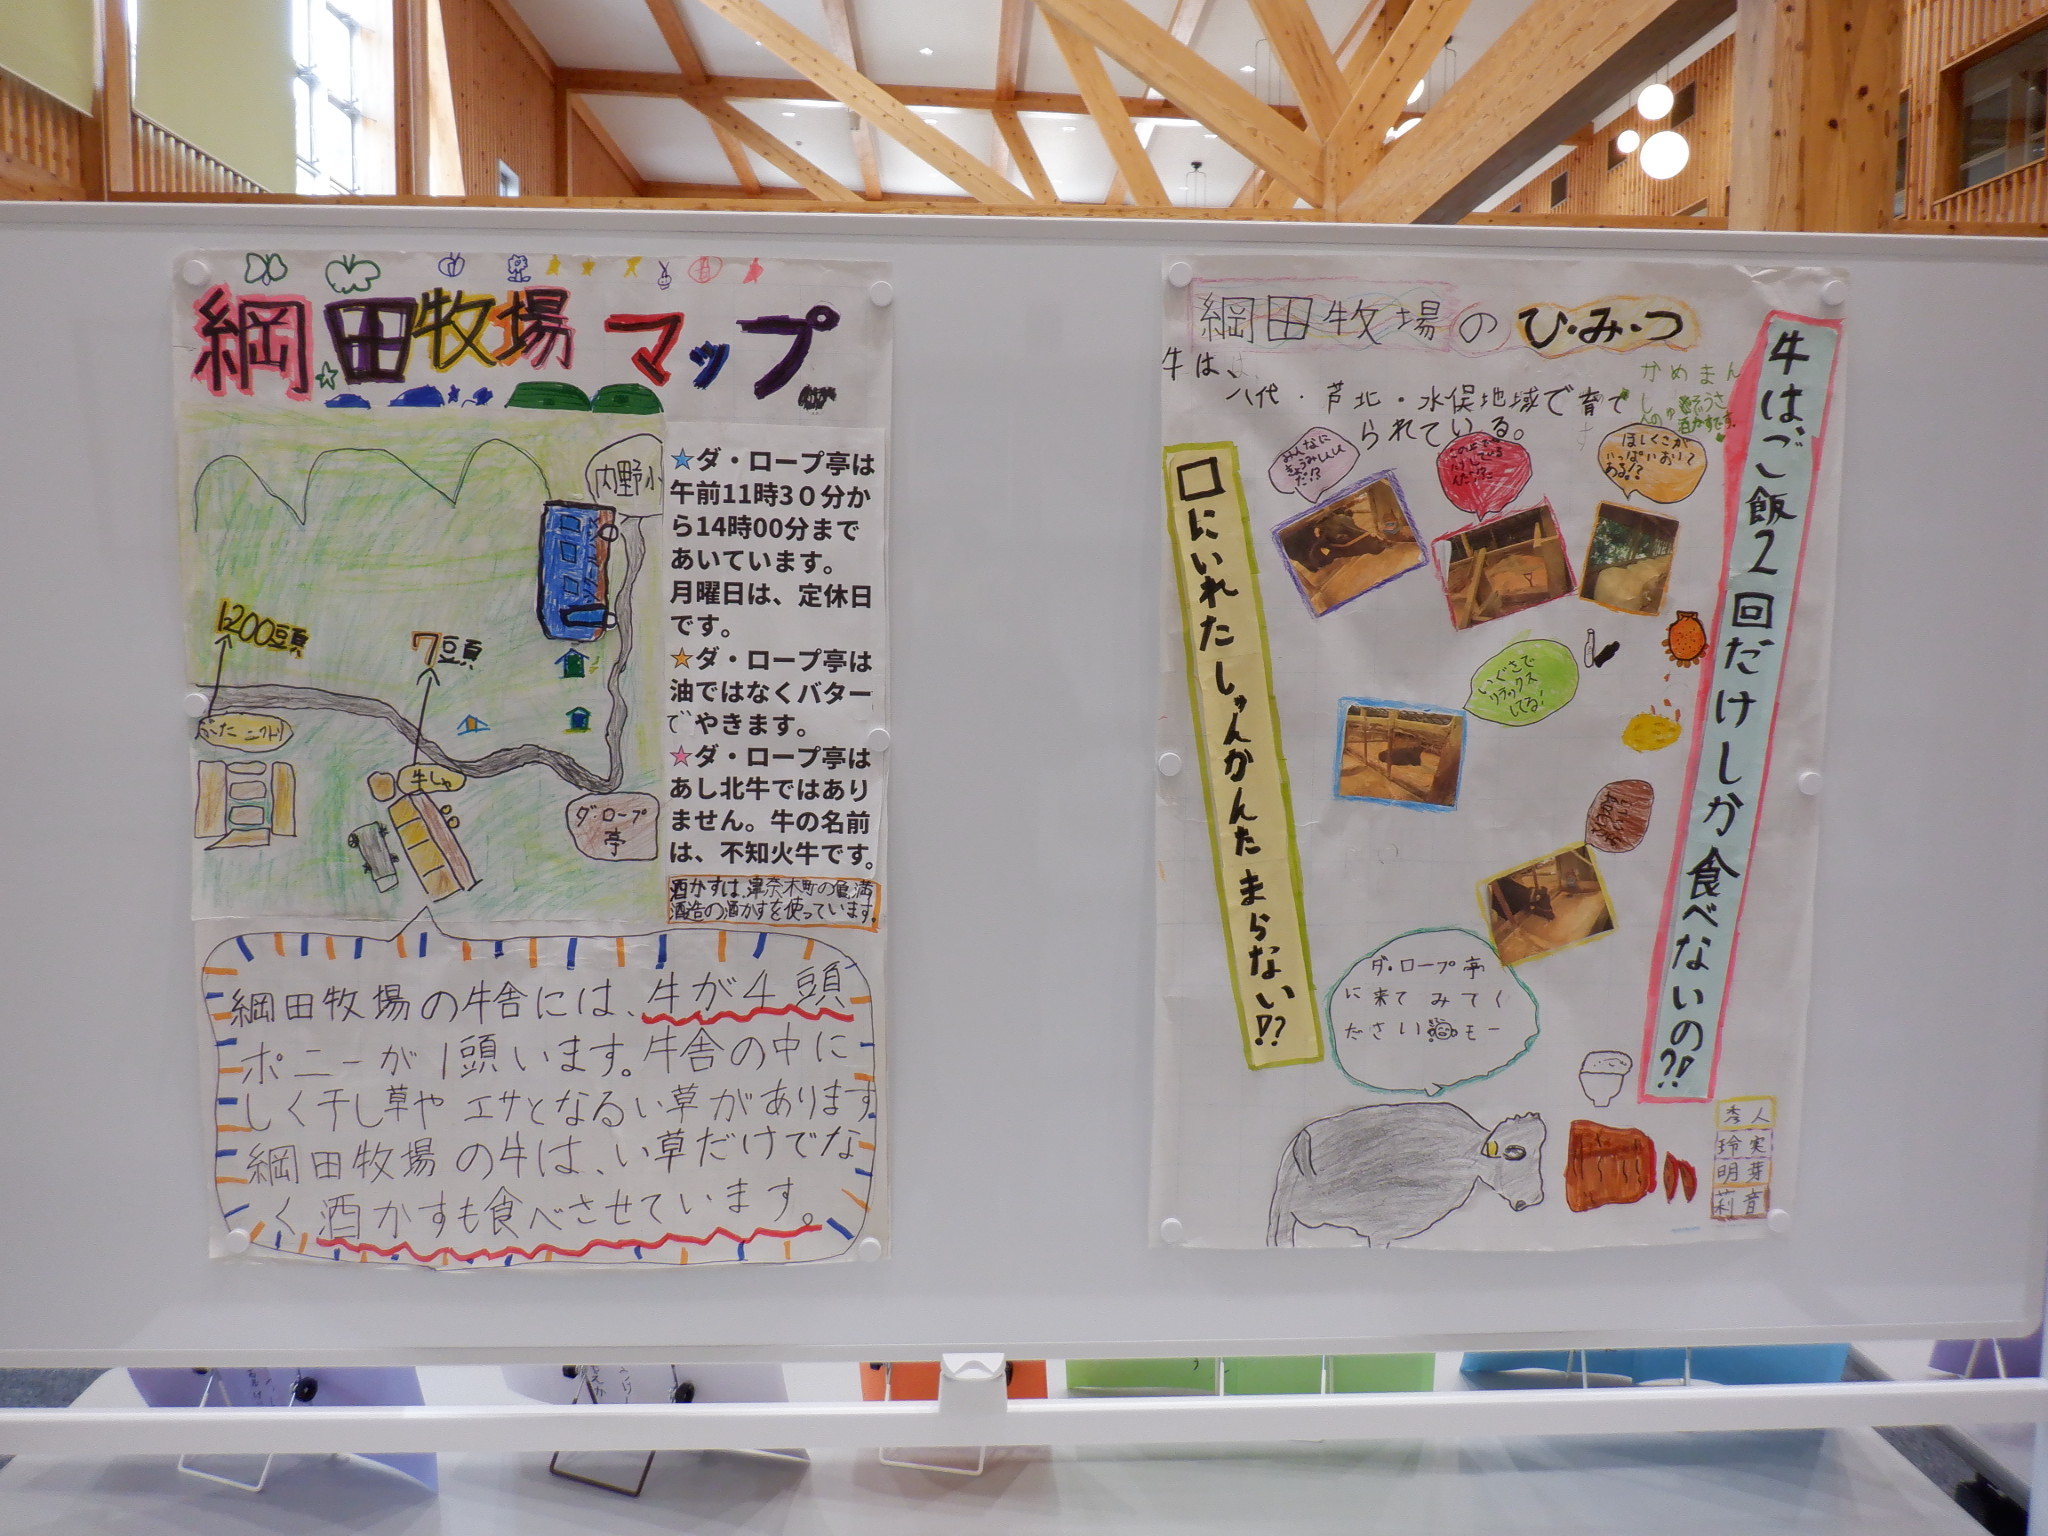 綱田牧場マップ
内野小
1200頭
7頭
ぶた ニワトリ
牛しゃ
ダ・ロープ
亭
★ダ・ロープ亭は
午前11時30分か
ら14時00分まで
あいています。
月曜日は、定休日
です。
★ダ・ロープ亭は
油ではなくバター
でやきます。
★ダ・ロープ亭は
あし北牛ではあり
ません。牛の名前
は、不知火牛です。
酒かすは、津奈木町の亀満
酒造の酒かすを使っています。
綱田牧場の牛舎には、牛が4頭
ポニーが1頭います。牛舎の中に
しく干し草や エサとなるい草があります
綱田牧場の牛は、い草だけでな
く酒かすも食べさせています。
綱田牧場のひ・み・つ
牛は、
八代・芦北・水俣地域で育て
られている。
かめまん
酒かすです。
牛はご飯2回だけしか食べないの?!
口にいれたしゅんかんたまらない!?
みんなに
きょうみしんしん
だ!?
ほしくさが
いっぱいおいて
ある!?
いぐさで
リラックス
してる!
ダ・ロープ亭
に来てみてく
ださい モー
秀人
玲実
明芽
莉音